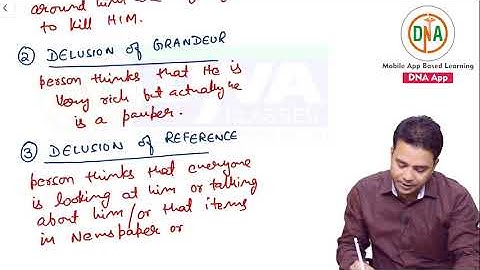 around him
to kill HIM.
② DELUSION of GRANDEUR
person thinks that He is
very rich but actually he
is a pauper.
③ DELUSION of REFERENCE
person thinks that everyone
is looking at him or talking
about him/or that items
in Newspaper or
DNA
Mobile App Based Learning
DNA App